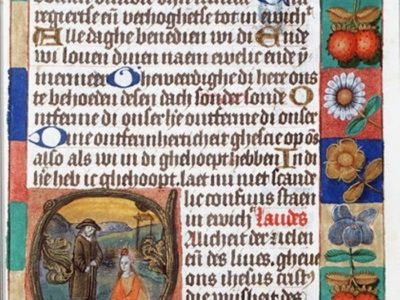 regiertse en verhoghetse tot in ewich
Alle daghe benedien wi di Ende
wi louen dinen naem ewelic ende ỹ
mermeer Gheweerdighe di here ons
te behoeden desen dach sonder sonde O
ontferme di onser here ontferme di onser
Dine ontfermherticheit ghescie op ōs
also als wi in di ghehoept hebben In di
here heb ic ghehoopt laet mi niet scande
lic confuus staen
in ewich Laudes
Suicheit der zielen
en des lives, gheue
ons ihesus cristᵒ